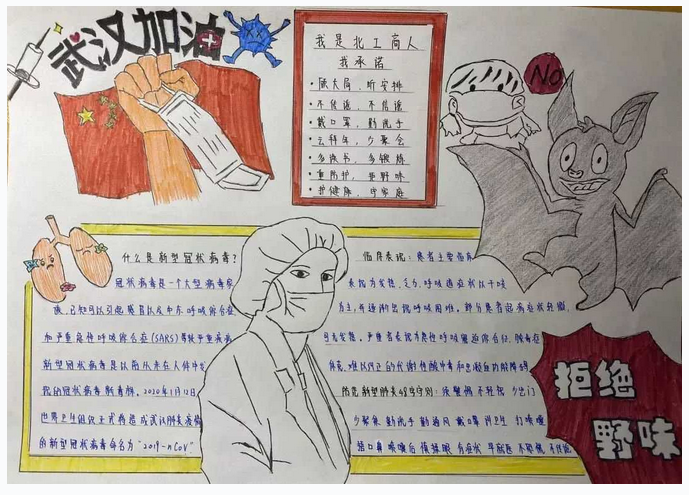 武汉加油
我是北工商人
我承诺
·顾大局、听安排
·不信谣、不传谣
·戴口罩、勤洗手
·云拜年、少聚会
·多读书、多锻炼
·重防护、拒野味
·护健康、守家庭
No
什么是新型冠状病毒?
冠状病毒是一个大型病毒家
族,已知可以引起感冒以及中东呼吸综合征
和严重急性呼吸综合征(SARS)等较严重疾病
新型冠状病毒是以前从未在人体中发
现的冠状病毒新毒株。2020年1月12日
世界卫生组织正式将造成武汉肺炎疫情
的新型冠状病毒命名为“2019-nCoV”
临床表现:患者主要临床
表现为发热、乏力,呼吸道症状以干咳
为主,并逐渐出现呼吸困难,部分患者起病症状轻微,
且无发热。严重者表现为急性呼吸窘迫综合征、脓毒症
休克、难以纠正的代谢性酸中毒和出凝血功能障碍
防范新型肺炎42字守则:须警惕 不轻视 少出门
少聚集 勤洗手 勤通风 戴口罩 讲卫生 打喷嚏
捂口鼻 喷嚏后 慎揉眼 有症状 早就医 不恐慌 不传谣
拒绝
野味